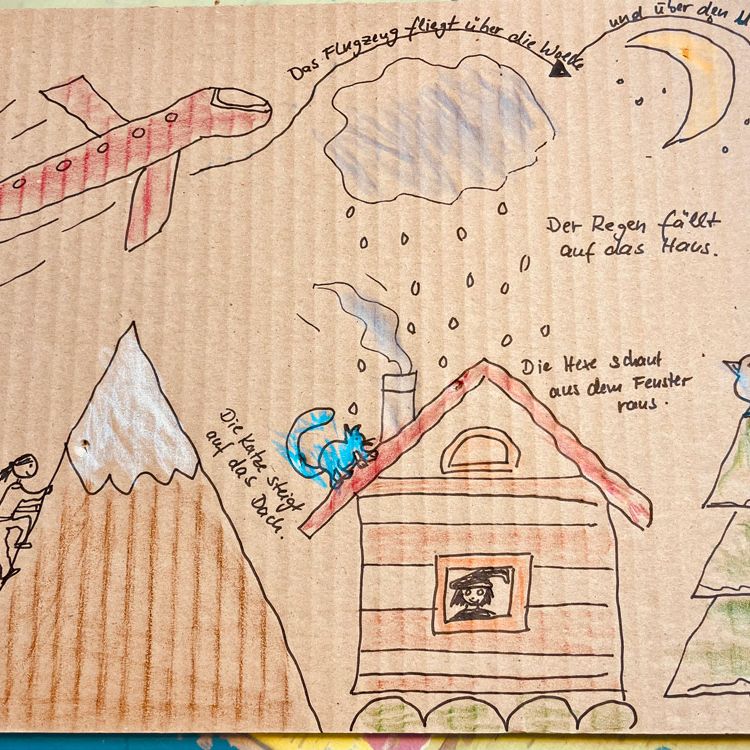 Das Flugzeug fliegt über die Wolke
und über den
Der Regen fällt
auf das Haus.
Die Hexe schaut
aus dem Fenster
raus.
Die Katze steigt
auf das Dach.